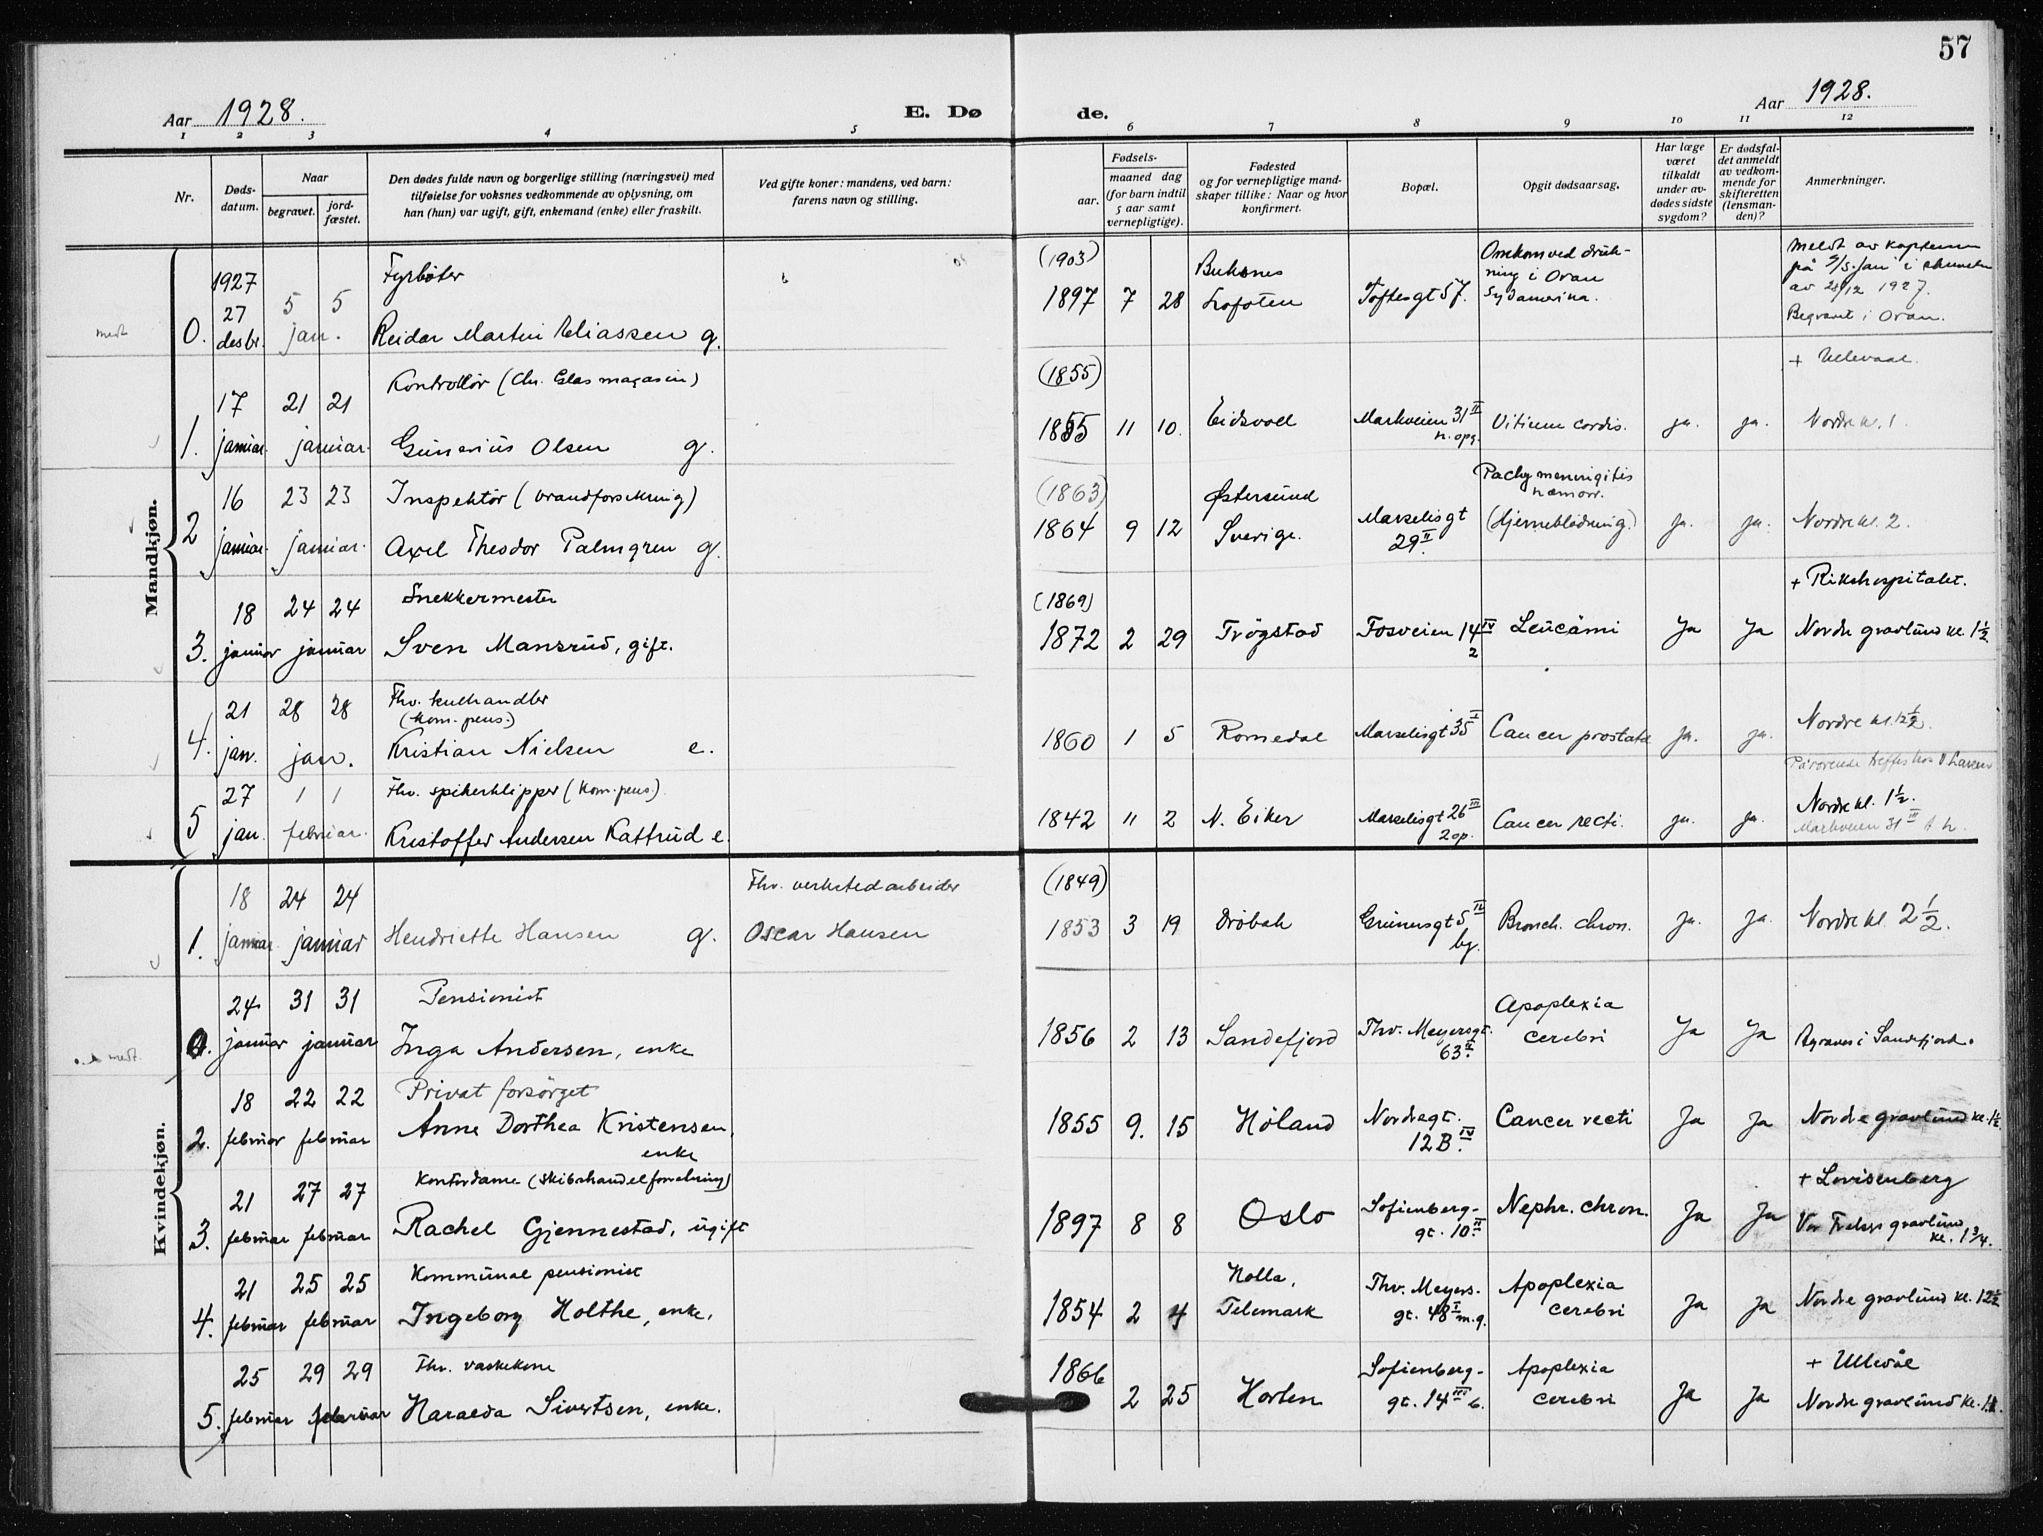 57
Aar 1928.
E. Dø
de.
Aar 1928.
1 2 3 4 5 6 7 8 9 10 11 12
Nr.
Døds-
datum.
Naar
begravet.
jord-
fæstet.
Den dødes fulde navn og borgerlige stilling (næringsvei) med
tilføielse for voksnes vedkommende av oplysning, om
han (hun) var ugift, gift, enkemand (enke) eller fraskilt.
Ved gifte koner: mandens, ved barn:
farens navn og stilling.
Fødsels-
aar.
maaned dag
(for barn indtil
5 aar samt
vernepligtige).
Fødested
og for vernepligtige mand-
skaper tillike: Naar og hvor
konfirmert.
Bopæl.
Opgit dødsaarsag.
Har læge
været
tilkaldt
under av-
dødes sidste
sygdom?
Er dødsfal-
det anmeldt
av vedkom-
mende for
skifteretten
(lensman-
den)?
Anmerkninger.
Mandkjøn.
1927 Fyrbøter (1903) Buksnes Omkom ved druk-
27 5 5 1897 7 28 Lofoten Toftesgt 57. ning i Oran
Sydamerika.
medt 0. desbr. jan. Reidar Martin Eliassen g.
Meldt av kapteinen
på i
av 28/12 1927.
Begravet i Oran.
Kontrollør (Chr. Glasmagasin) (1855) + Ullevaal.
17 21 21
1. januar. januar. Gunerius Olsen g. 1855 11 10. Eidsvoll Markveien 31 II Vitium cordis. ja. ja. Nordre kl. 1
n. opg.
16 23 23 Inspektør (brandforsikring) (1863) Østersund Pachymeningitis
hæmorr.
2 januar. januar. Axel Theodor Palmgren g. 1864 9 12 Sverige. Marselisgt (Hjerneblødning.) ja. ja. Nordre kl. 2.
29 II.
18 24 24 Snekkermester (1869) + Rikshospitalet.
3. januar januar Sven Mansrud, gift. 1872 2 29 Trøgstad Fosveien 14 IV Leucämi Ja Ja Nordre gravlund kl. 1½
2
21 28 28 Fhv. kulhandler
(kom. pens.)
4. jan. jan. Kristian Nielsen e. 1860 1 5 Romedal Marselisgt 35 I Cancer prostata ja. ja. Nordre kl. 12½.
Pårørende treffes hos
27 1 1 Fhv. spikerklipper (kom. pens.)
5 jan. februar. Kristoffer Andersen Kattrud e. 1842 11 2 N. Eiker Marselisgt 26 III Cancer recti. ja. ja. Nordre kl. 1½.
2 op. Markveien 31 III
Kvindekjøn.
18 24 24 Fhv. verkstedarbeider (1849)
1. januar januar Henriette Hansen g. Oscar Hansen 1853 3 19 Drøbak Grünersgt 5 IV Bronch. chron. ja. ja. Nordre kl. 2½.
bg.
24 31 31 Pensionist Apoplexia
medt. 0. januar januar Inga Andersen, enke 1856 2 13 Sandefjord Thv. Meyersgt. cerebri Ja Ja Begraves i Sandefjord.
63 II.
18 22 22 Privat forsørget
2. februar februar Anne Dorthea Kristensen, 1855 9. 15 Høland Nordregt. Cancer recti Ja Ja Nordre gravlund kl. 1½
enke 12 B. IV
21 27 27 Kontordame (skibshandelforretning) + Lovisenberg
3. februar februar Rachel Gjennestad, ugift 1897 8 8 Oslo Sofienberg- Nephr. chron. Ja Ja Vor Frelsers gravlund
gt. 10 II kl. 1¾.
21 25 25 Kommunal pensionist Holla, Thv. Meyers- Apoplexia
4. februar februar Ingeborg Holthe, enke. 1854 2 4 Telemark gt. 48 I m.g. cerebri Ja Ja Nordre gravlund kl. 12½
25 29 29 Fhv. vaskekone 1866 Sofienberg- Apoplexia + Ullevål
5. februar februar Haralda Sivertsen, enke. 2 25 Horten gt. 14 III b. cerebri Ja Ja Nordre gravlund kl.